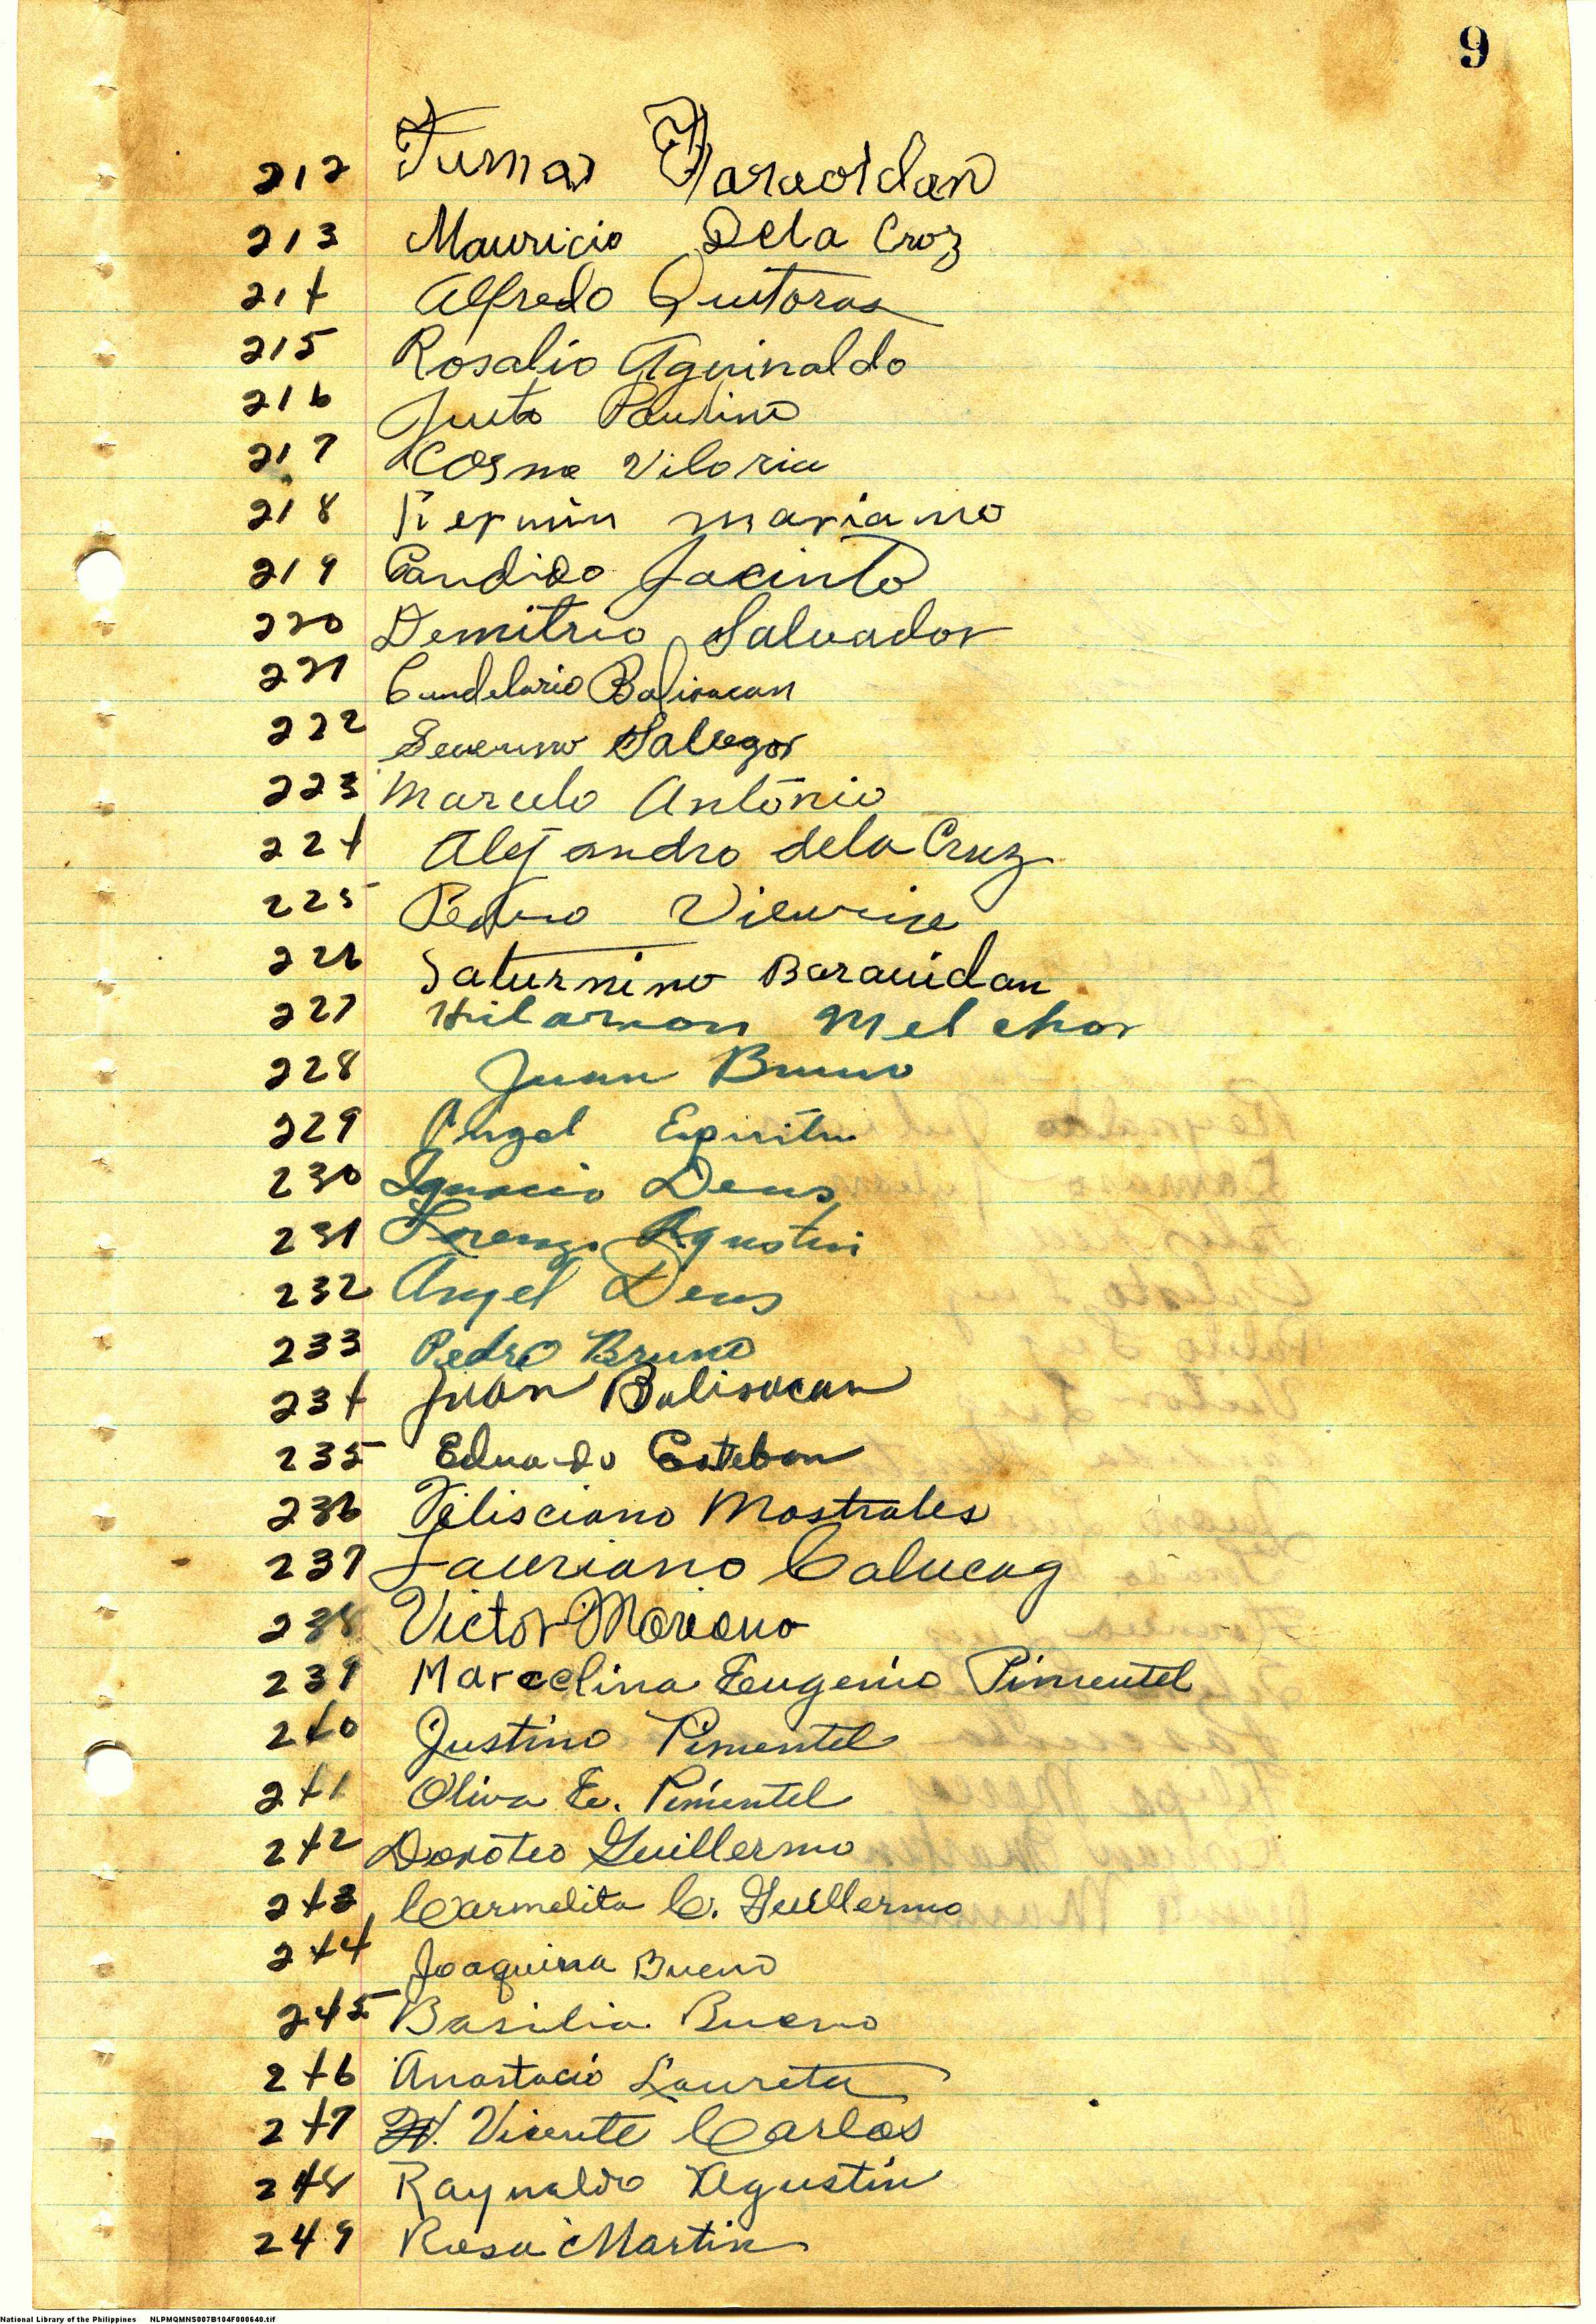 9
212 Tumas Baraoidan
213 Mauricio Dela Croz
214 Alfredo Quitoras
215 Rosalio Aguinaldo
216 Justo Paulino
217 Cosme Viloria
218 Fermin mariano
219 Candido Jacinto
220 Demitrio Salvador
221 Candelario Balisacan
222 Severino
223 Marcelo Antonio
224 Alejandro dela Cruz
225 Pedro
226 Saturnino Barauidan
227 Hilarion Melchor
228 Juan Bruno
229 Angel Espiritu
230 Ignacio Deus
231 Lorenzo Agustin
232 Angel Deus
233 Pedro Bruno
234 Juan Balisacan
235 Eduardo Esteban
236 Felisciano Mostrales
237 Lauriano Calucag
238 Victor Moriano
239 Marcelina Eugenio Pimentel
240 Justino Pimentel
241 Oliva E. Pimentel
242 Doroteo Guillermo
243 Carmelita C. Guillermo
244 Joaquina Bueno
245 Basilia Bueno
246 Anastacio Laureta
247 Vicente Carlos
248 Raynaldo Agustin
249 Rosa Martin
National Library of the Philippines NLPMQMNS007B104F000640.tif